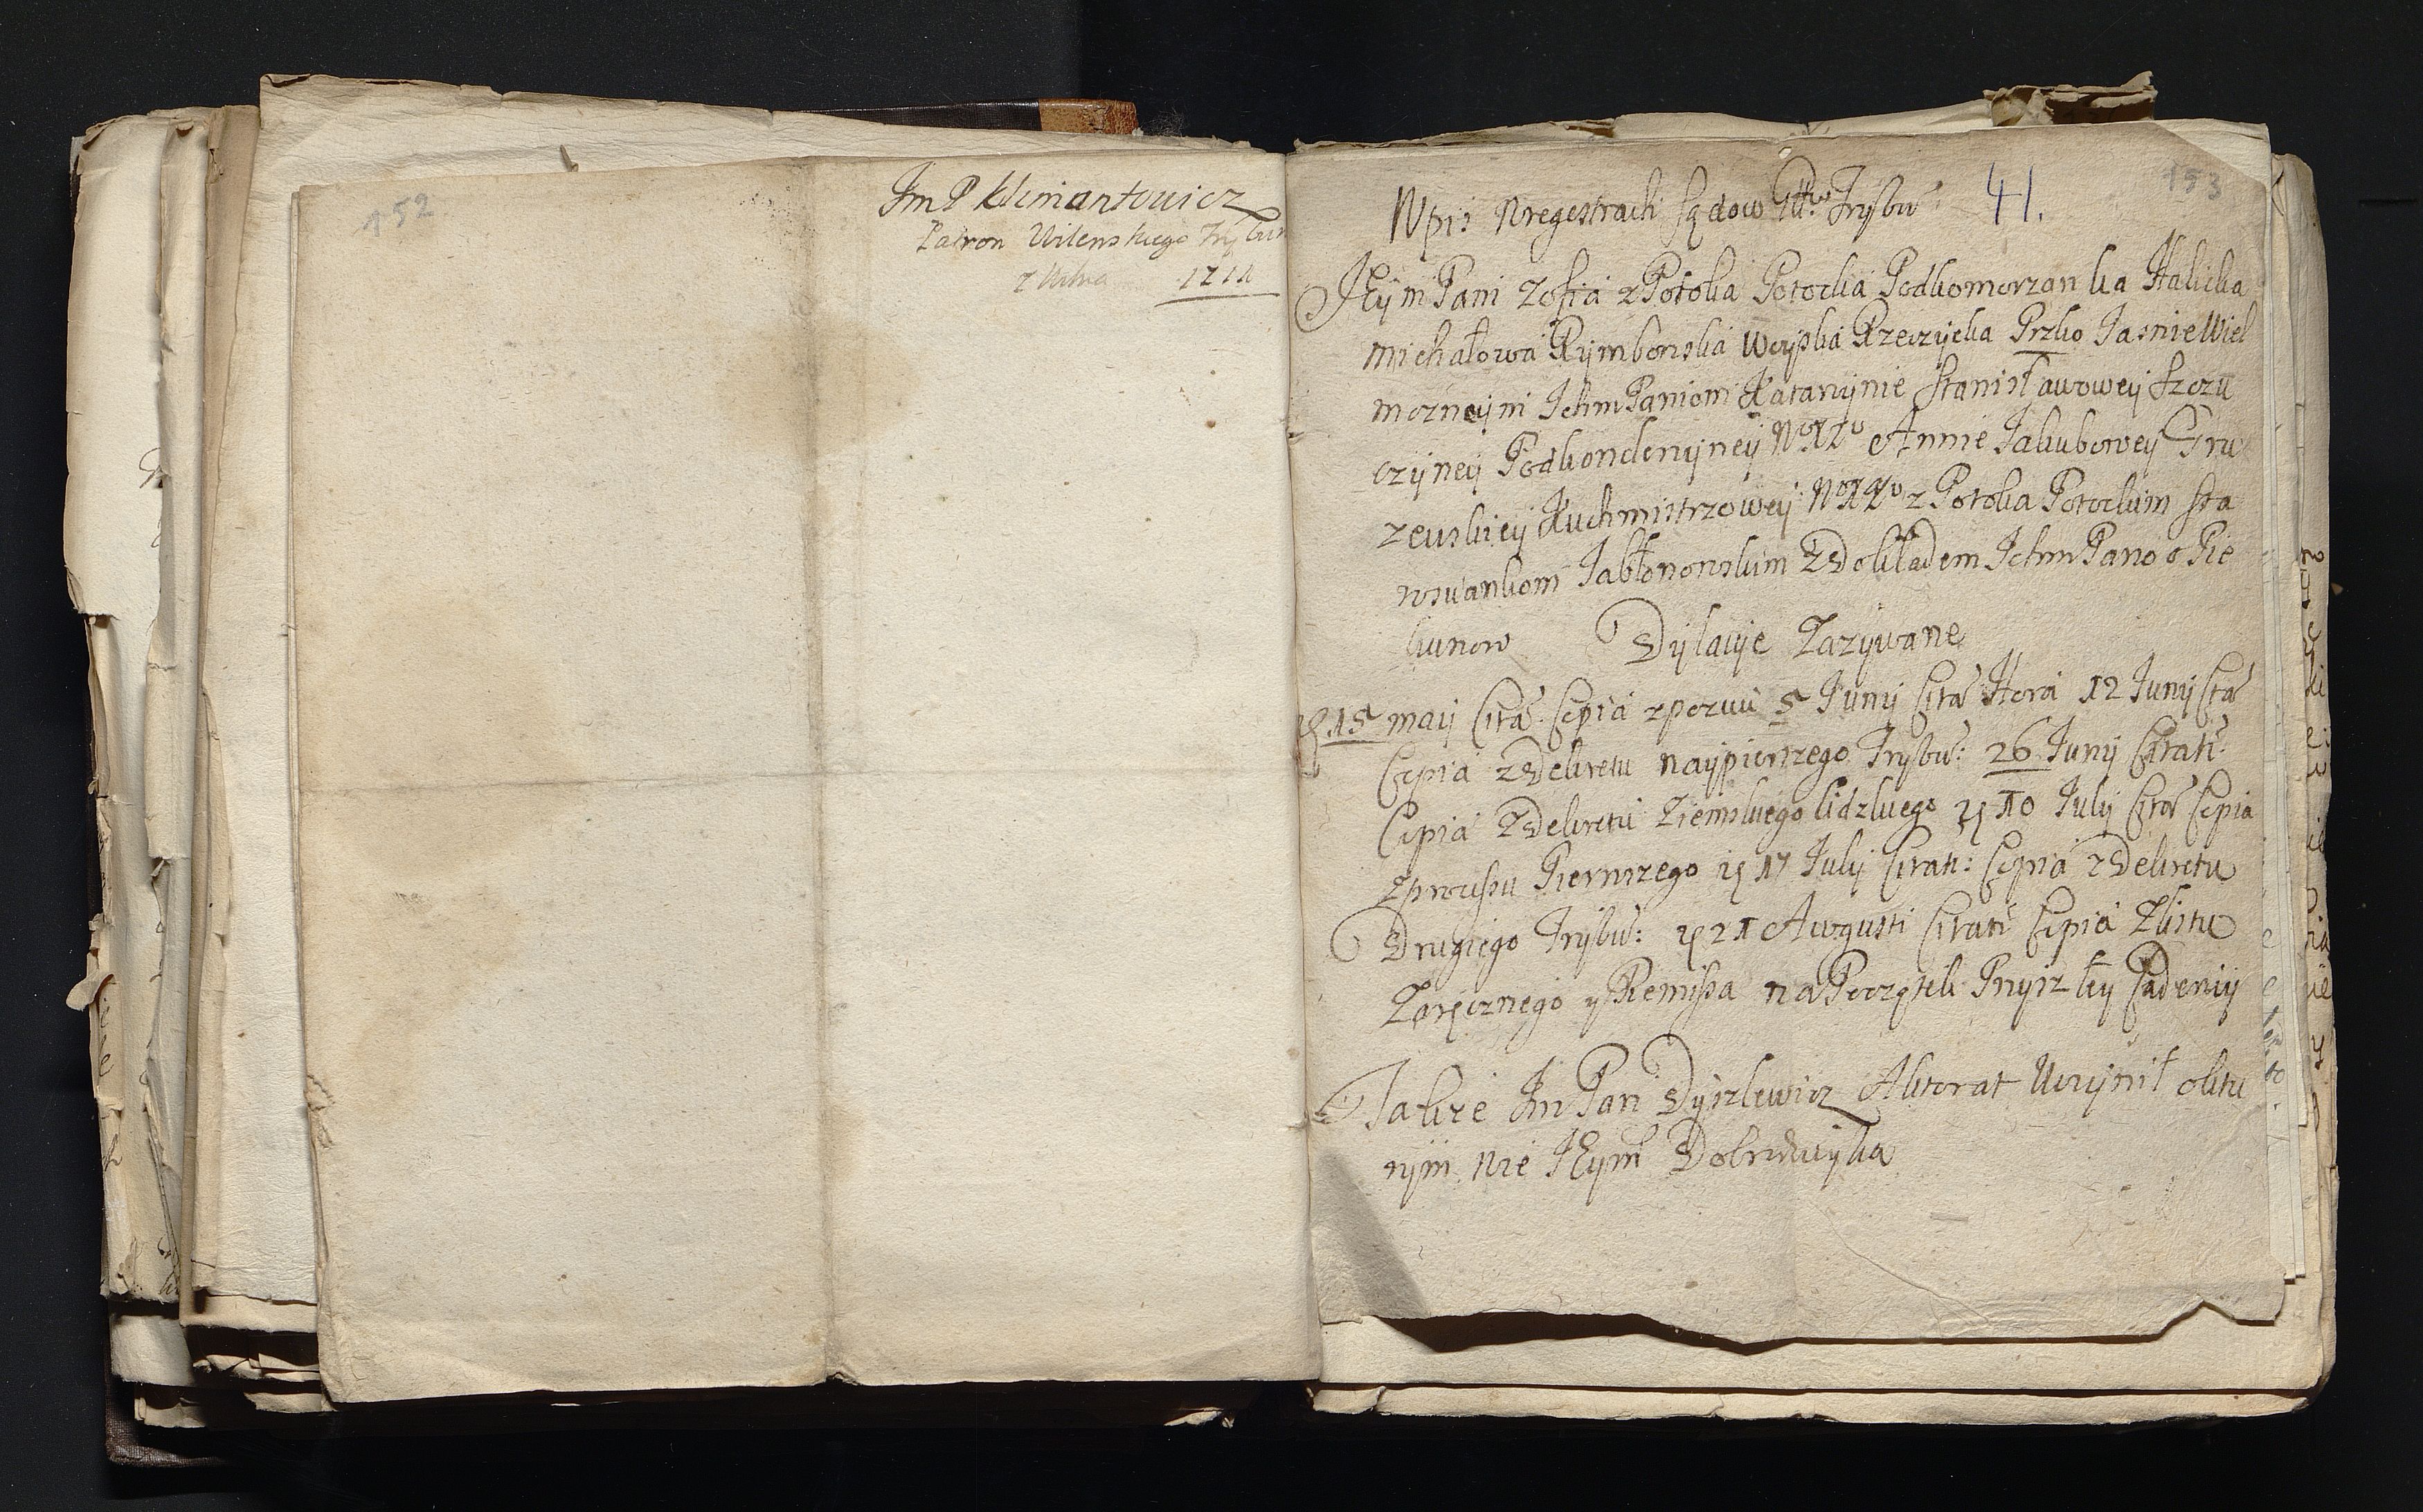 152
Im P Klimantowicz
Patron Wilenskiego Trybun
z Wilna 1711
41.
153
Wpis Wregestrach sądow Trybu
JEym Pani Zofia z Potoka Potocka Podkomorzanka Halicka
michałowa Rymbonska Woyska Rzeczycka Przko Jasnie Wiel
moznym Ichm Paniom Katarzynie stanisławowey szczu
czyney Podkonclerzyney WXL Annie Jakubowey Gru
zewskiey Kuchmistrzowey WXL z Potoka Potockim sta
roscankom Jabłonowskim Z Dokładem Ichm Panow Pie
kunow Dylacye Zazywane
15 maij Cita Copia z pozwu 5 Junij Cita Hora 12 Junij Cita
Copia z Dekretu naypierszego Trybu: 26 Junij Citati
Copia z Dekretu Ziemskiego lidzkiego 10 Julij Cita Copia
z processu Pierwszego 17 Julij Citati: Copia z Dekretu
Drugiego Trybu: 21 Augusti Citati Copia z listu
Zaręcznego y Remissa na Początek Przyszłey Cadencij
Takze Im Pan Dyszlewicz Aktorat Uczynił oktu
rym nie JEym Dobrodzieyka